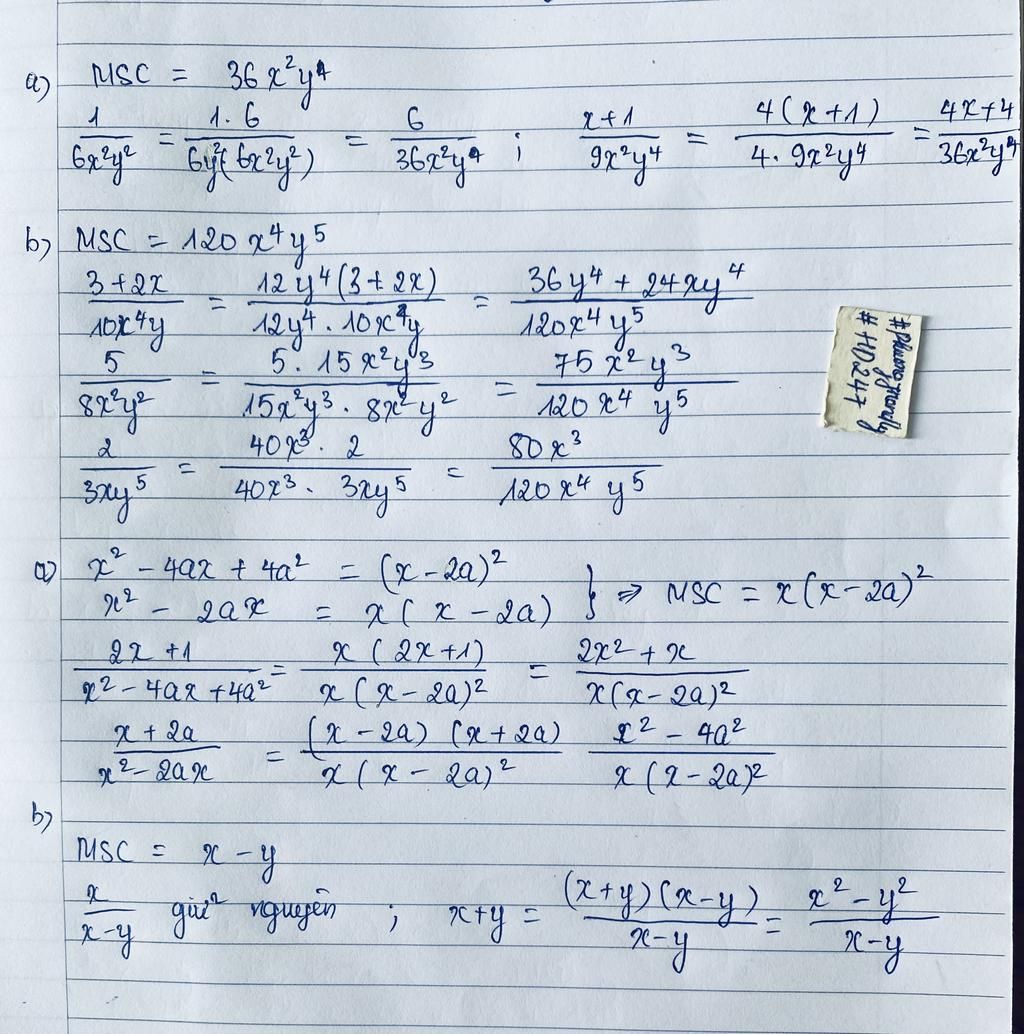 a) MSC = 36x²y⁴
1/(6x²y²) = (1.6)/(6y²(6x²y²)) = 6/(36x²y⁴) ; (x+1)/(9x²y⁴) = (4(x+1))/(4.9x²y⁴) = (4x+4)/(36x²y⁴)
b) MSC = 120x⁴y⁵
(3+2x)/(10x⁴y) = (12y⁴(3+2x))/(12y⁴.10x⁴y) = (36y⁴+24xy⁴)/(120x⁴y⁵)
5/(8x²y²) = (5.15x²y³)/(15x²y³.8x²y²) = (75x²y³)/(120x⁴y⁵)
2/(3xy⁵) = (40x³.2)/(40x³.3xy⁵) = (80x³)/(120x⁴y⁵)
a) x² - 4ax + 4a² = (x-2a)²
x² - 2ax = x(x-2a) } ⇒ MSC = x(x-2a)²
(2x+1)/(x²-4ax+4a²) = (x(2x+1))/(x(x-2a)²) = (2x²+x)/(x(x-2a)²)
(x+2a)/(x²-2ax) = ((x-2a)(x+2a))/(x(x-2a)²) (x²-4a²)/(x(x-2a)²)
b)
MSC = x-y
x/(x-y) giữ nguyên ; x+y = ((x+y)(x-y))/(x-y) = (x²-y²)/(x-y)
#HD247